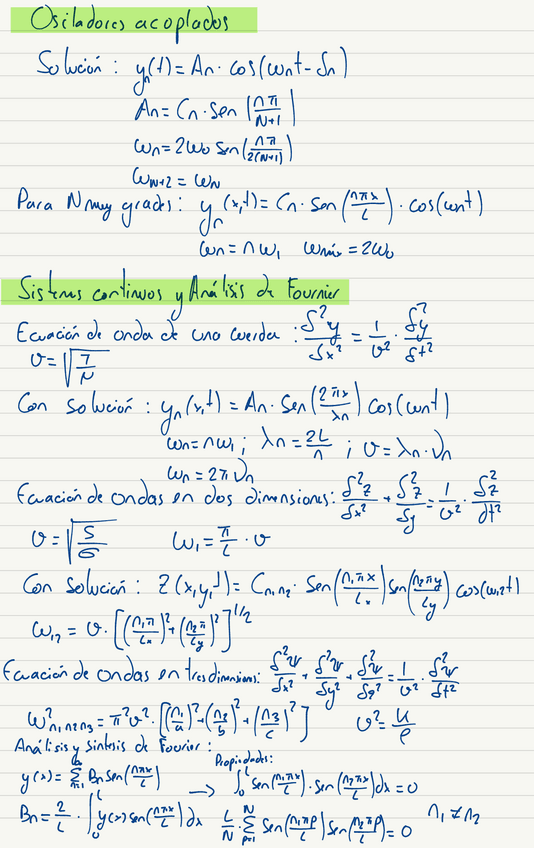 Osciladores acoplados
Solución: yₙ(t) = Aₙ · cos(ωₙt - δₙ)
Aₙ = Cₙ · sen(nπ/(N+1))
ωₙ = 2ω₀ sen(nπ/(2(N+1)))
ωₙ₊₂ = ωₙ
Para N muy grades: yₙ(x,t) = Cₙ · sen(nπx/L) · cos(ωₙt)
ωₙ = nω₁ ωmáx = 2ω₀
Sistemas continuos y Análisis de Fournier
Ecuación de onda de una cuerda: δ²y/δx² = 1/v² · δ²y/δt²
v = √(T/μ)
Con solución: yₙ(x,t) = Aₙ · sen(2πx/λₙ) cos(ωₙt)
ωₙ = nω₁; λₙ = 2L/n; v = λₙ · νₙ
ωₙ = 2πνₙ
Ecuación de ondas en dos dimensiones: δ²z/δx² + δ²z/δy = 1/v² · δ²z/δt²
v = √(S/σ) ω₁ = π/L · v
Con solución: Z(x,y,t) = Cₙ₁ₙ₂ · sen(n₁πx/Lx) sen(n₂πy/Ly) cos(ω₁₂t)
ω₁₂ = v · [(n₁π/Lx)² + (n₂π/Ly)²]^1/2
Ecuación de ondas en tres dimensions: δ²ψ/δx² + δ²ψ/δy² + δ²ψ/δz² = 1/v² · δ²ψ/δt²
ω²ₙ₁ₙ₂ₙ₃ = π²v² · [(n₁/a)² + (n₂/b)² + (n₃/c)²] v² = K/ρ
Análisis y síntesis de Fourier:
Propiedades:
y(x) = Σₙ₌₁^∞ Bₙ sen(nπx/L) → ∫₀ᴸ sen(n₁πx/L) · sen(n₂πx/L) dx = 0
Bₙ = 2/L · ∫₀ᴸ y(x) sen(nπx/L) dx L/N · Σₚ₌₁^N sen(n₁πp/L) sen(n₂πp/L) = 0 n₁ ≠ n₂